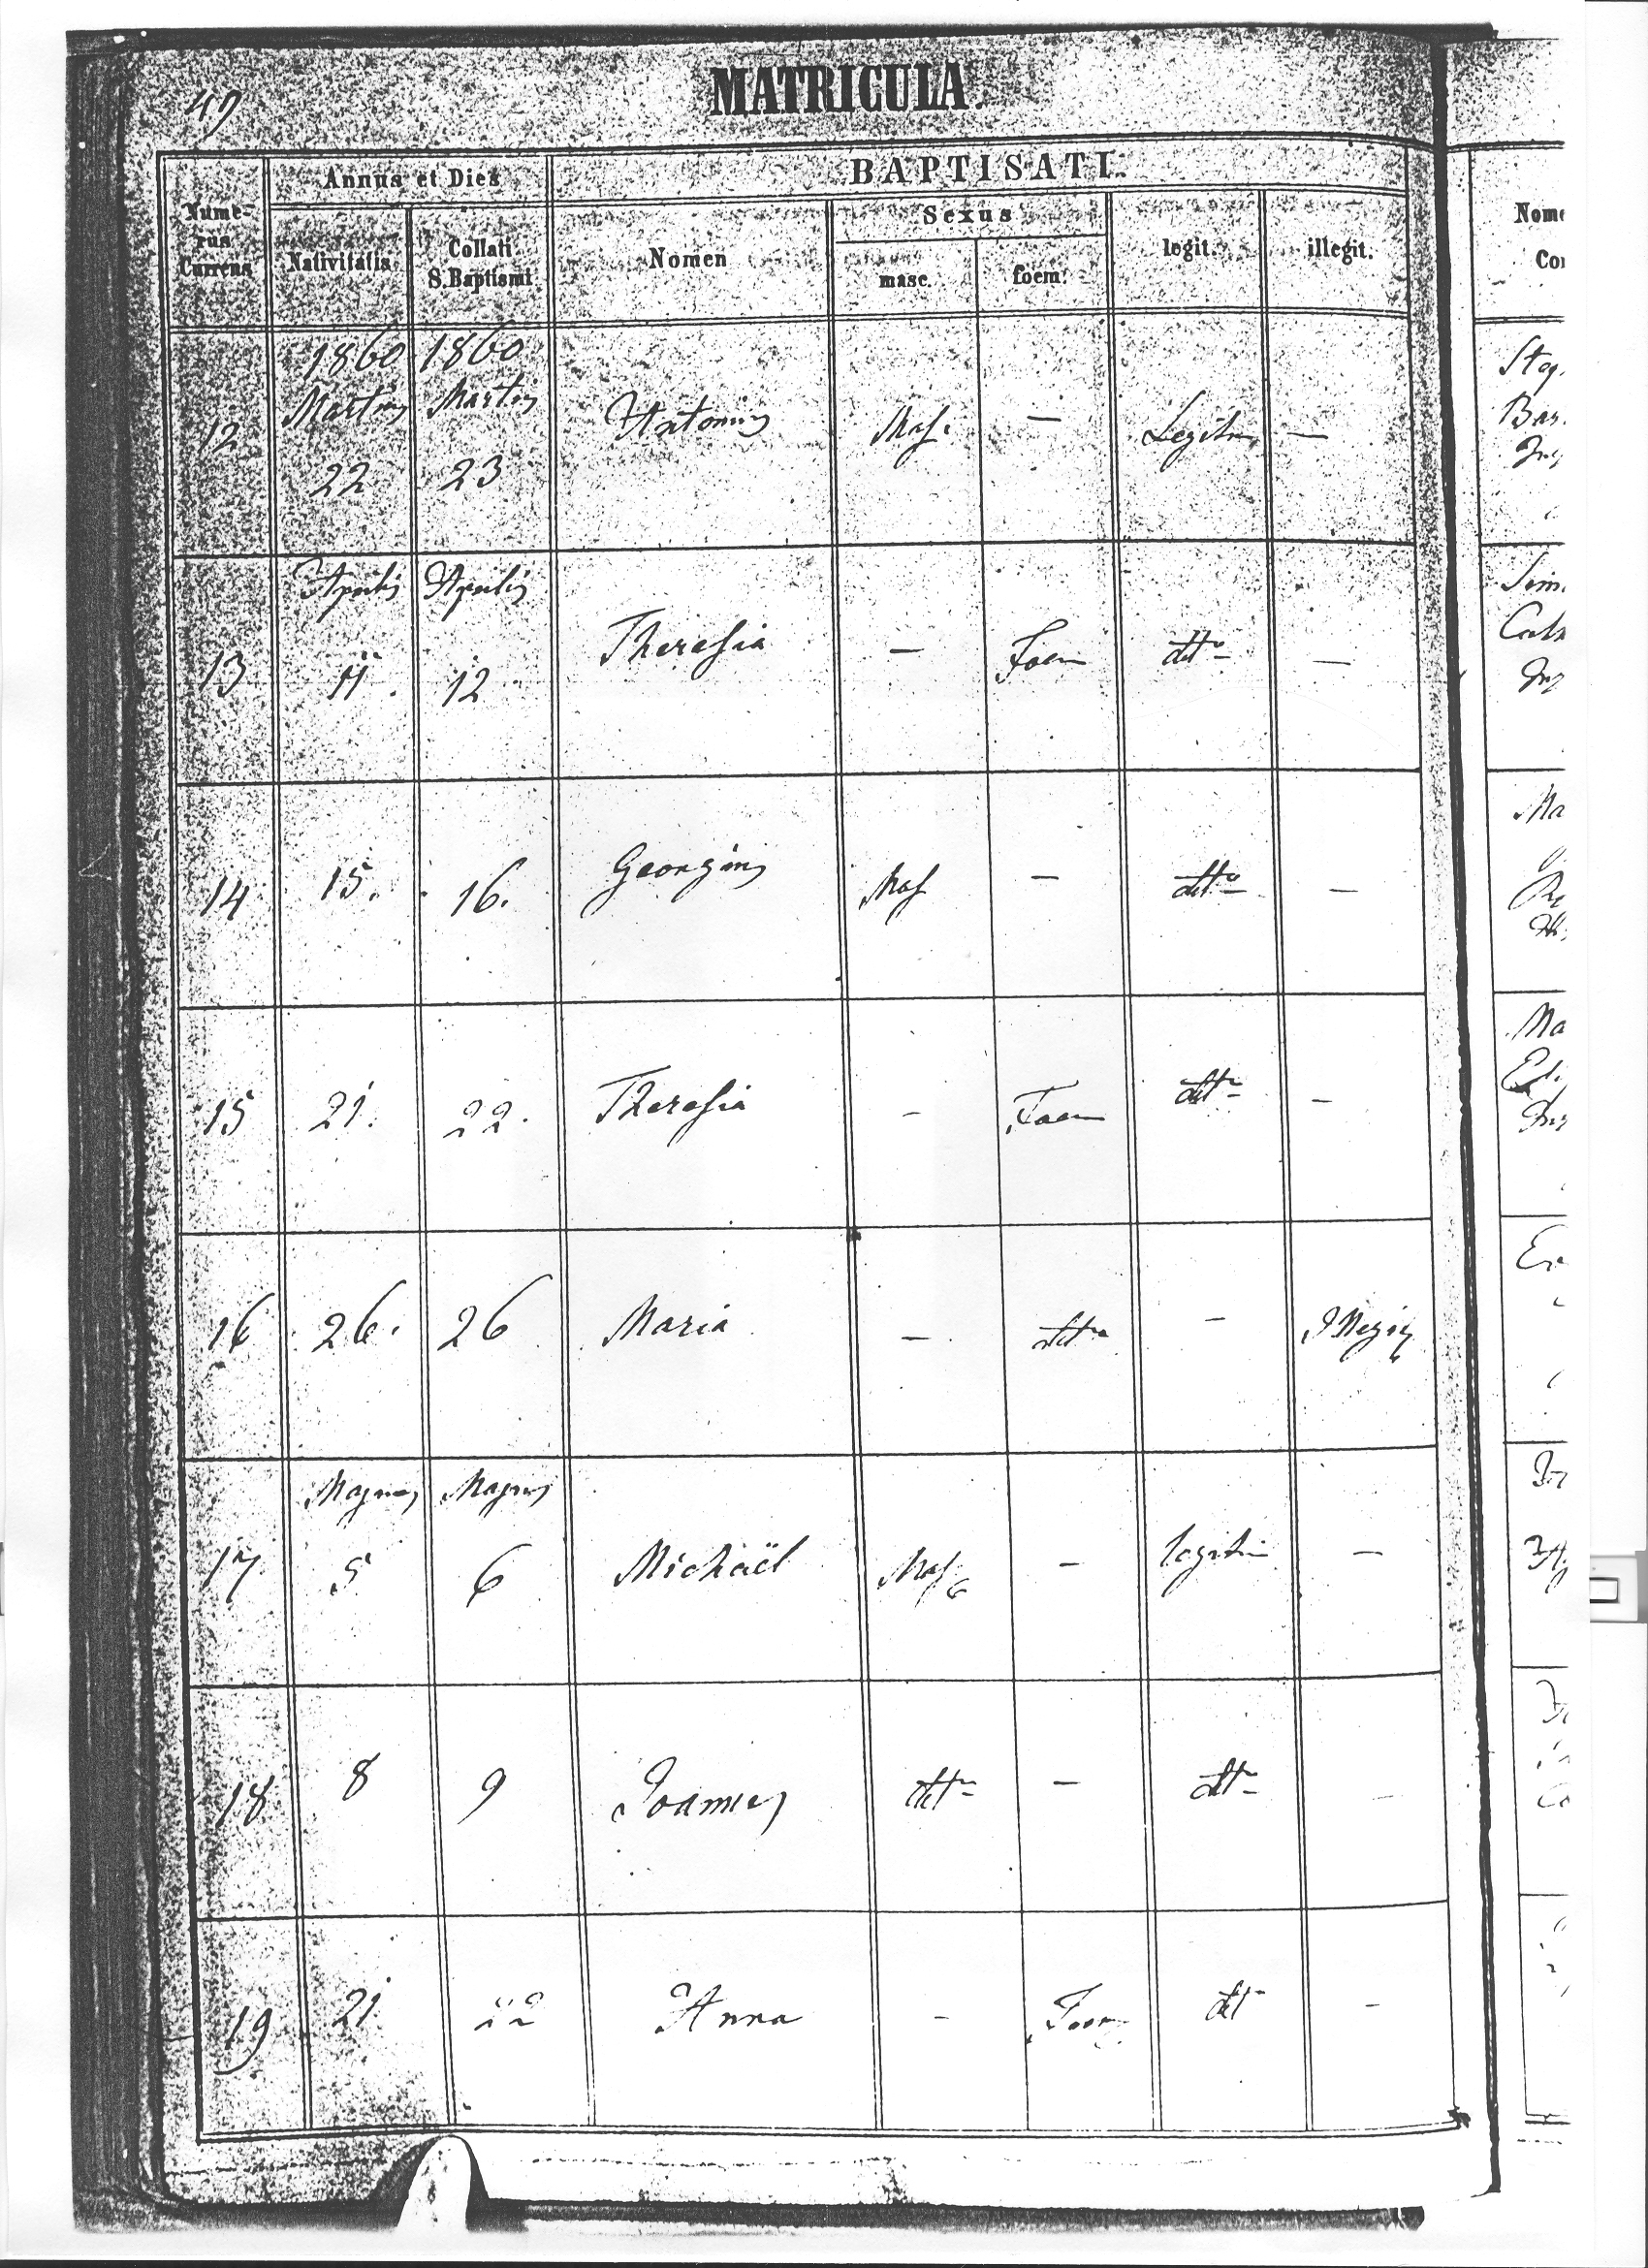 49
MATRICULA.
Annus et Dies
BAPTISATI.
Nume-
rus
Currens
Nativitatis
Collati
S. Baptismi
Nomen
Sexus
masc.
foem.
legit.
illegit.
Nome
Con
1860 1860
Martius Martius
12 22 23 Antonius Mas. — Legitim —
Aprilis Aprilis
13 11. 12 Theresia — Foem dtto —
14 15. 16. Georgius Mas — dtto —
15 21. 22. Theresia — Foem dtto —
16 26. 26 Maria — dtto — Illegit
Majus Majus
17 5 6 Michaël Mas — legitim —
18 8 9 Joannes dtto — dtto —
19 21 22 Anna — Foem dtt —